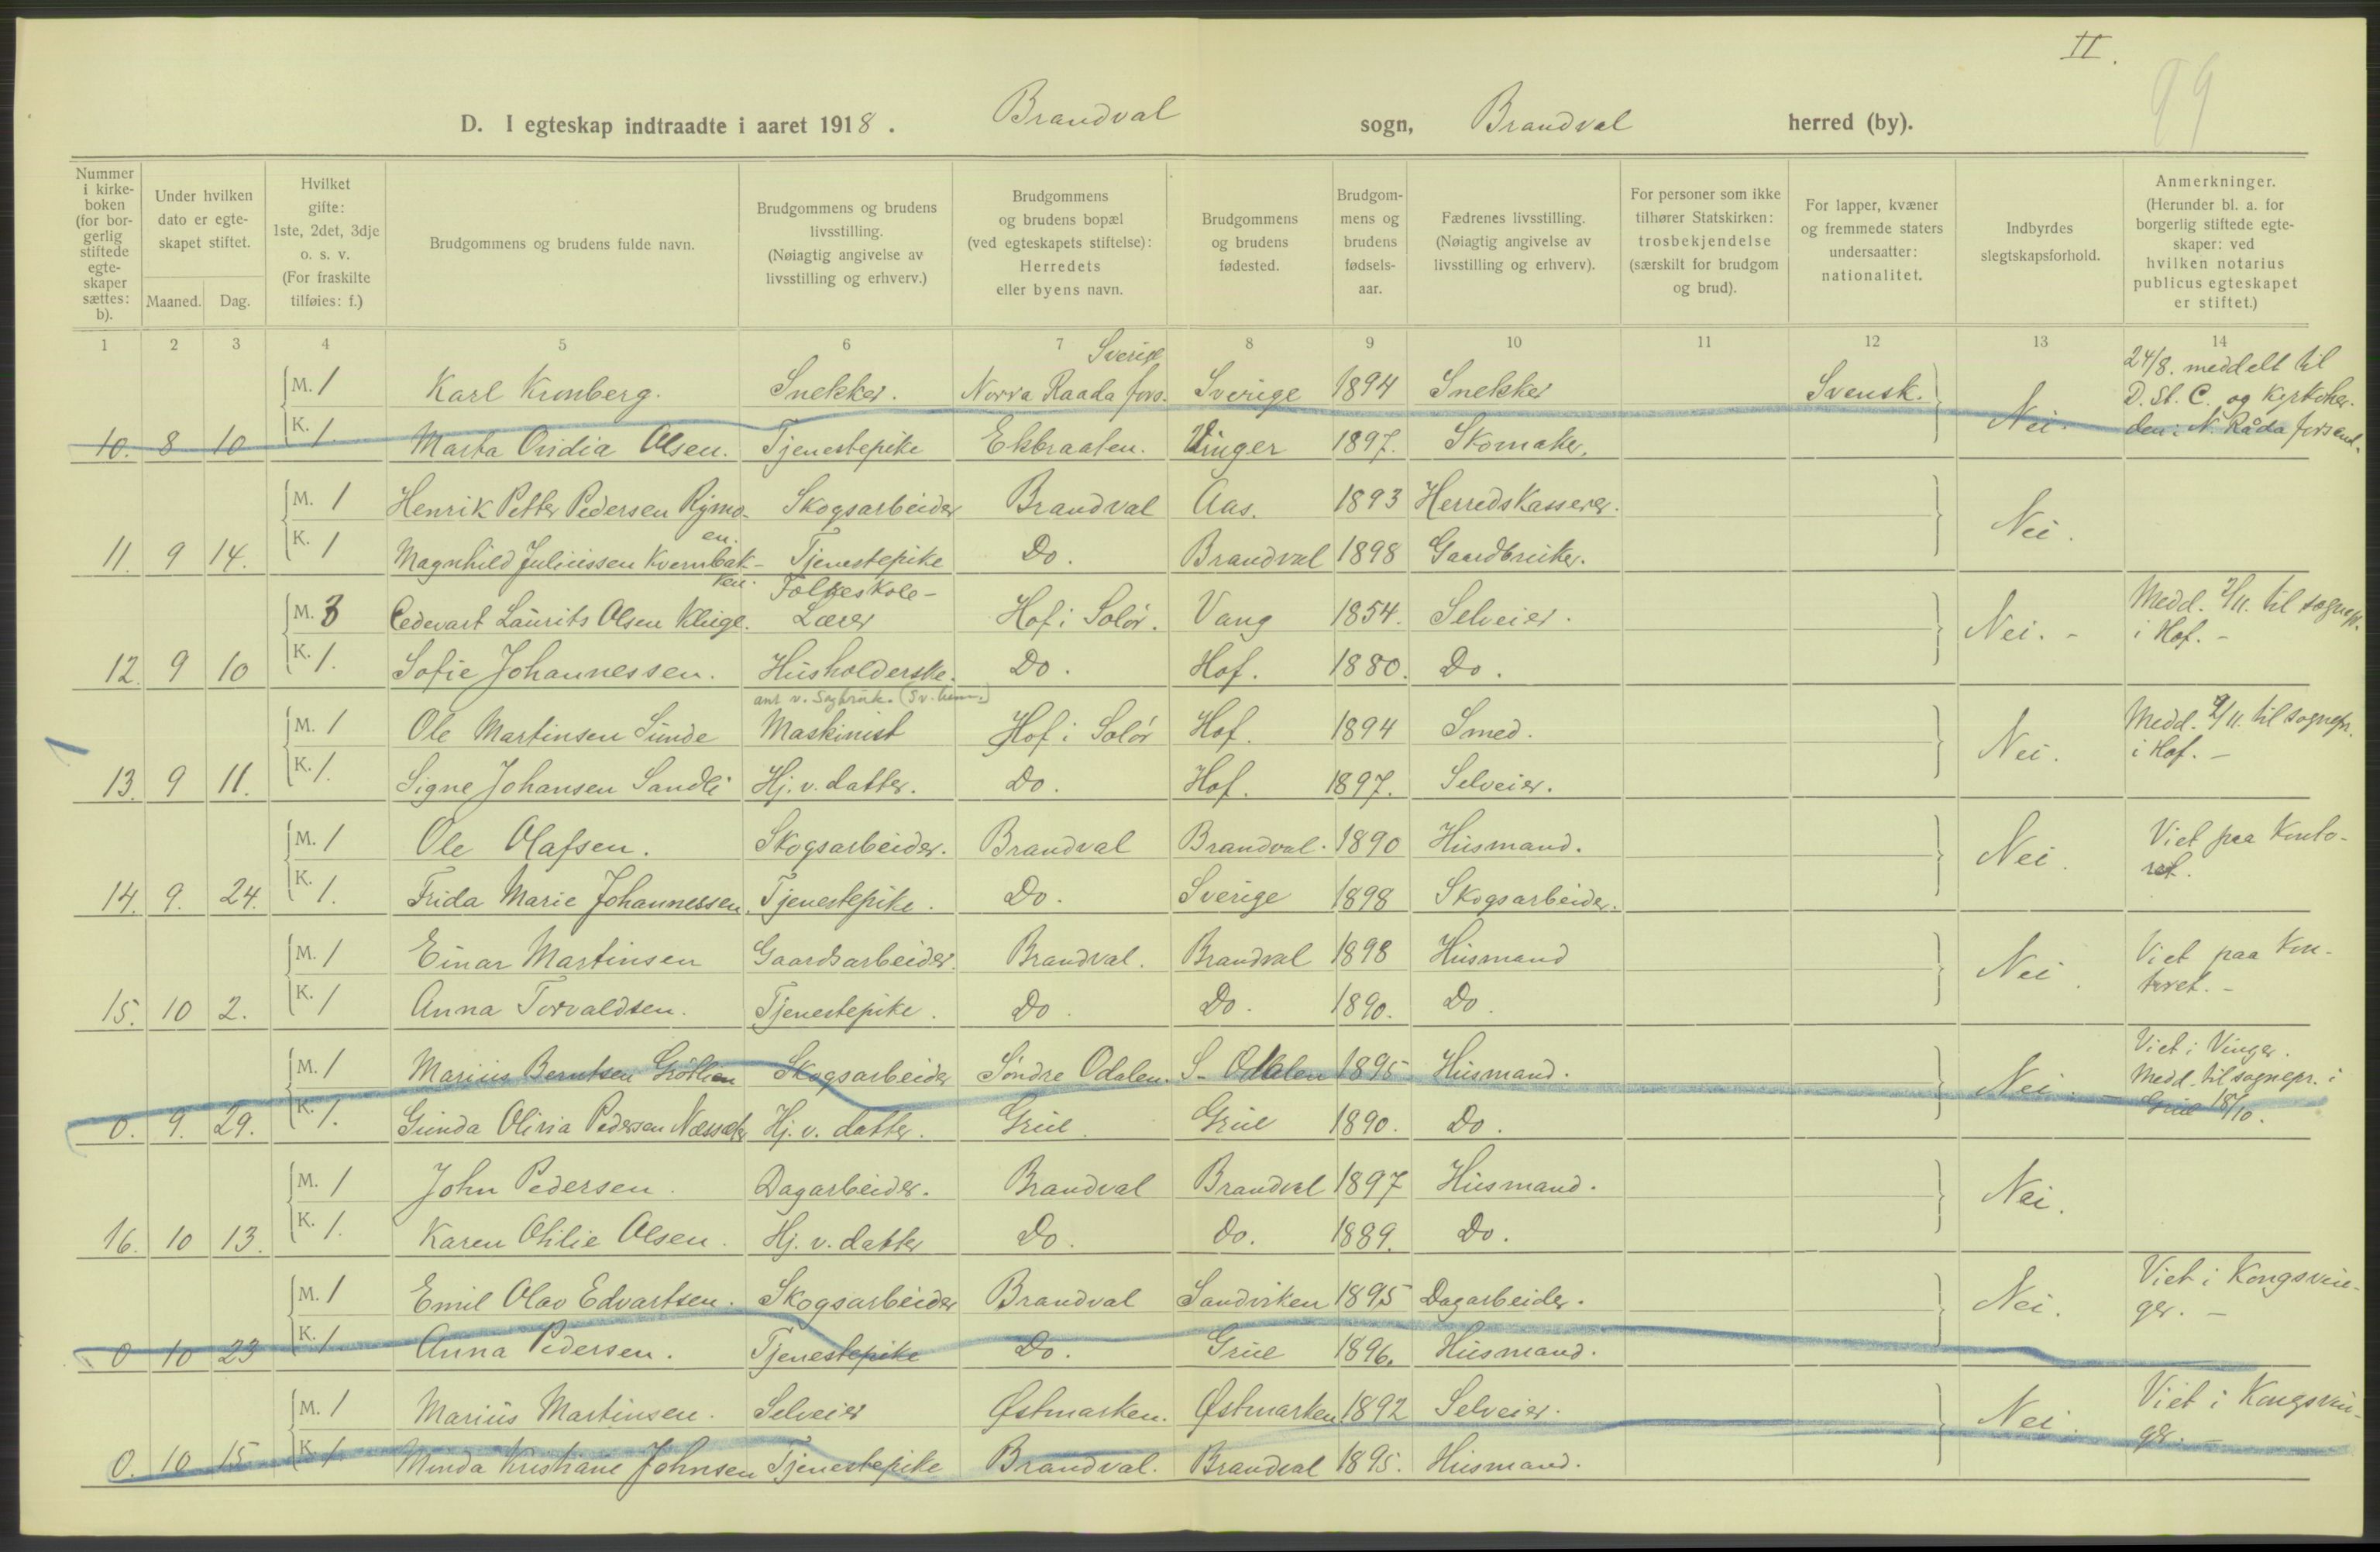 II.
99
D. I egteskap indtraadte i aaret 1918. Brandval sogn, Brandval herred (by).
Nummer i kirke-boken (for bor-gerlig stiftede egte-skaper sættes: b).
Under hvilken dato er egte-skapet stiftet.
Maaned. Dag.
Hvilket gifte: 1ste, 2det, 3dje o. s. v. (For fraskilte tilføies: f.)
Brudgommens og brudens fulde navn.
Brudgommens og brudens livsstilling. (Nøiagtig angivelse av livsstilling og erhverv.)
Brudgommens og brudens bopæl (ved egteskapets stiftelse): Herredets eller byens navn.
Brudgommens og brudens fødested.
Brudgom-mens og brudens fødsels-aar.
Fædrenes livsstilling. (Nøiagtig angivelse av livsstilling og erhverv).
For personer som ikke tilhører Statskirken: trosbekjendelse (særskilt for brudgom og brud).
For lapper, kvæner og fremmede staters undersaatter: nationalitet.
Indbyrdes slegtskapsforhold.
Anmerkninger. (Herunder bl. a. for borgerlig stiftede egte-skaper: ved hvilken notarius publicus egteskapet er stiftet.)
1 2 3 4 5 6 7 8 9 10 11 12 13 14
Sverige
M. 1 Karl Kronberg. Snekker. Norra Raada fors. Sverige 1894 Snekker Svensk. Nei. 24/8. meddelt til D. St. C. og Kyrkoher. den i N. Råda forsaml.
10. 8 10 K. 1. Marta Ovidia Olsen. Tjenestepike Ekbraaten. Vinger 1897. Skomaker.
M. 1 Henrik Petter Pedersen Rymo- Skogsarbeider Brandval Aas. 1893 Herredskasserer. Nei.
en.
11. 9 14. K. 1 Magnhild Juliussen Kvernbak- Tjenestepike Do. Brandval 1898 Gaardbruker.
ken. Folkeskole-
M. 3 Edevart Laurits Olsen Kluge. Lærer Hof i Solør. Vang 1854. Selveier. Nei. - Medd. 2/11. til sognepr. i Hof. -
12. 9 10 K. 1. Sofie Johannessen. Husholderske. Do. Hof. 1880. Do.
ans v. Sagbruk. (Sv. hem.)
M. 1 Ole Martinsen Sunde Maskinist Hof i Solør Hof. 1894 Smed. Nei. Medd. 2/11. til sognepr. i Hof. -
13. 9 11. K. 1. Signe Johansen Sandli Hj. v. datter. Do. Hof. 1897. Selveier.
M. 1 Ole Olafsen. Skogsarbeider. Brandval Brandval. 1890 Husmand. Nei. Viet paa Konto-ret.
14. 9. 24. K. 1. Frida Marie Johannessen. Tjenestepike. Do. Sverige 1898 Skogsarbeider.
M. 1 Einar Martinsen Gaardsarbeider. Brandval. Brandval 1898 Husmand Nei. Viet paa Kon-toret. -
15. 10 2. K. 1 Anna Torvaldsen. Tjenestepike. Do. Do. 1890. Do.
M. 1 Marius Berntsen Gröthen Skogsarbeider Söndre Odalen. S- Odalen 1895 Husmand. Nei. - Viet i Vinger. Medd. til sognepr. i Grue 18/10.
0. 9. 29. K. 1. Gunda Olivia Pedersen Næssæter Hj. v. datter. Grue. Grue 1890. Do.
M. 1 John Pedersen. Dagarbeider. Brandval Brandval 1897 Husmand. Nei.
16. 10 13. K. 1. Karen Otilie Olsen. Hj. v. datter Do. Do. 1889. Do.
M. 1 Emil Olav Edvartsen. Skogsarbeider Brandval Sandviken 1895 Dagarbeider. Nei. Viet i Kongsvin-ger. -
0 10 23 K. 1. Anna Pedersen. Tjenestepike Do. Grue 1896. Husmand.
M. 1 Marius Martinsen. Selveier Østmarken. Østmarken 1892 Selveier. Nei. Viet i Kongsvin-ger. -
0. 10 15 K. 1 Minda Kristiane Johnsen Tjenestepike Brandval. Brandval 1895. Husmand.